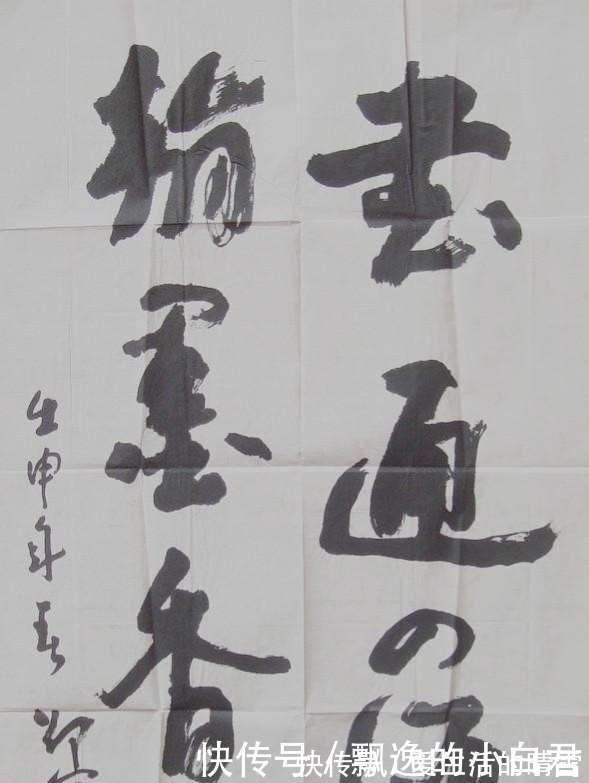 書通四
翰墨香
壬申年春
快传号 / 飘逸的小白君
快传号